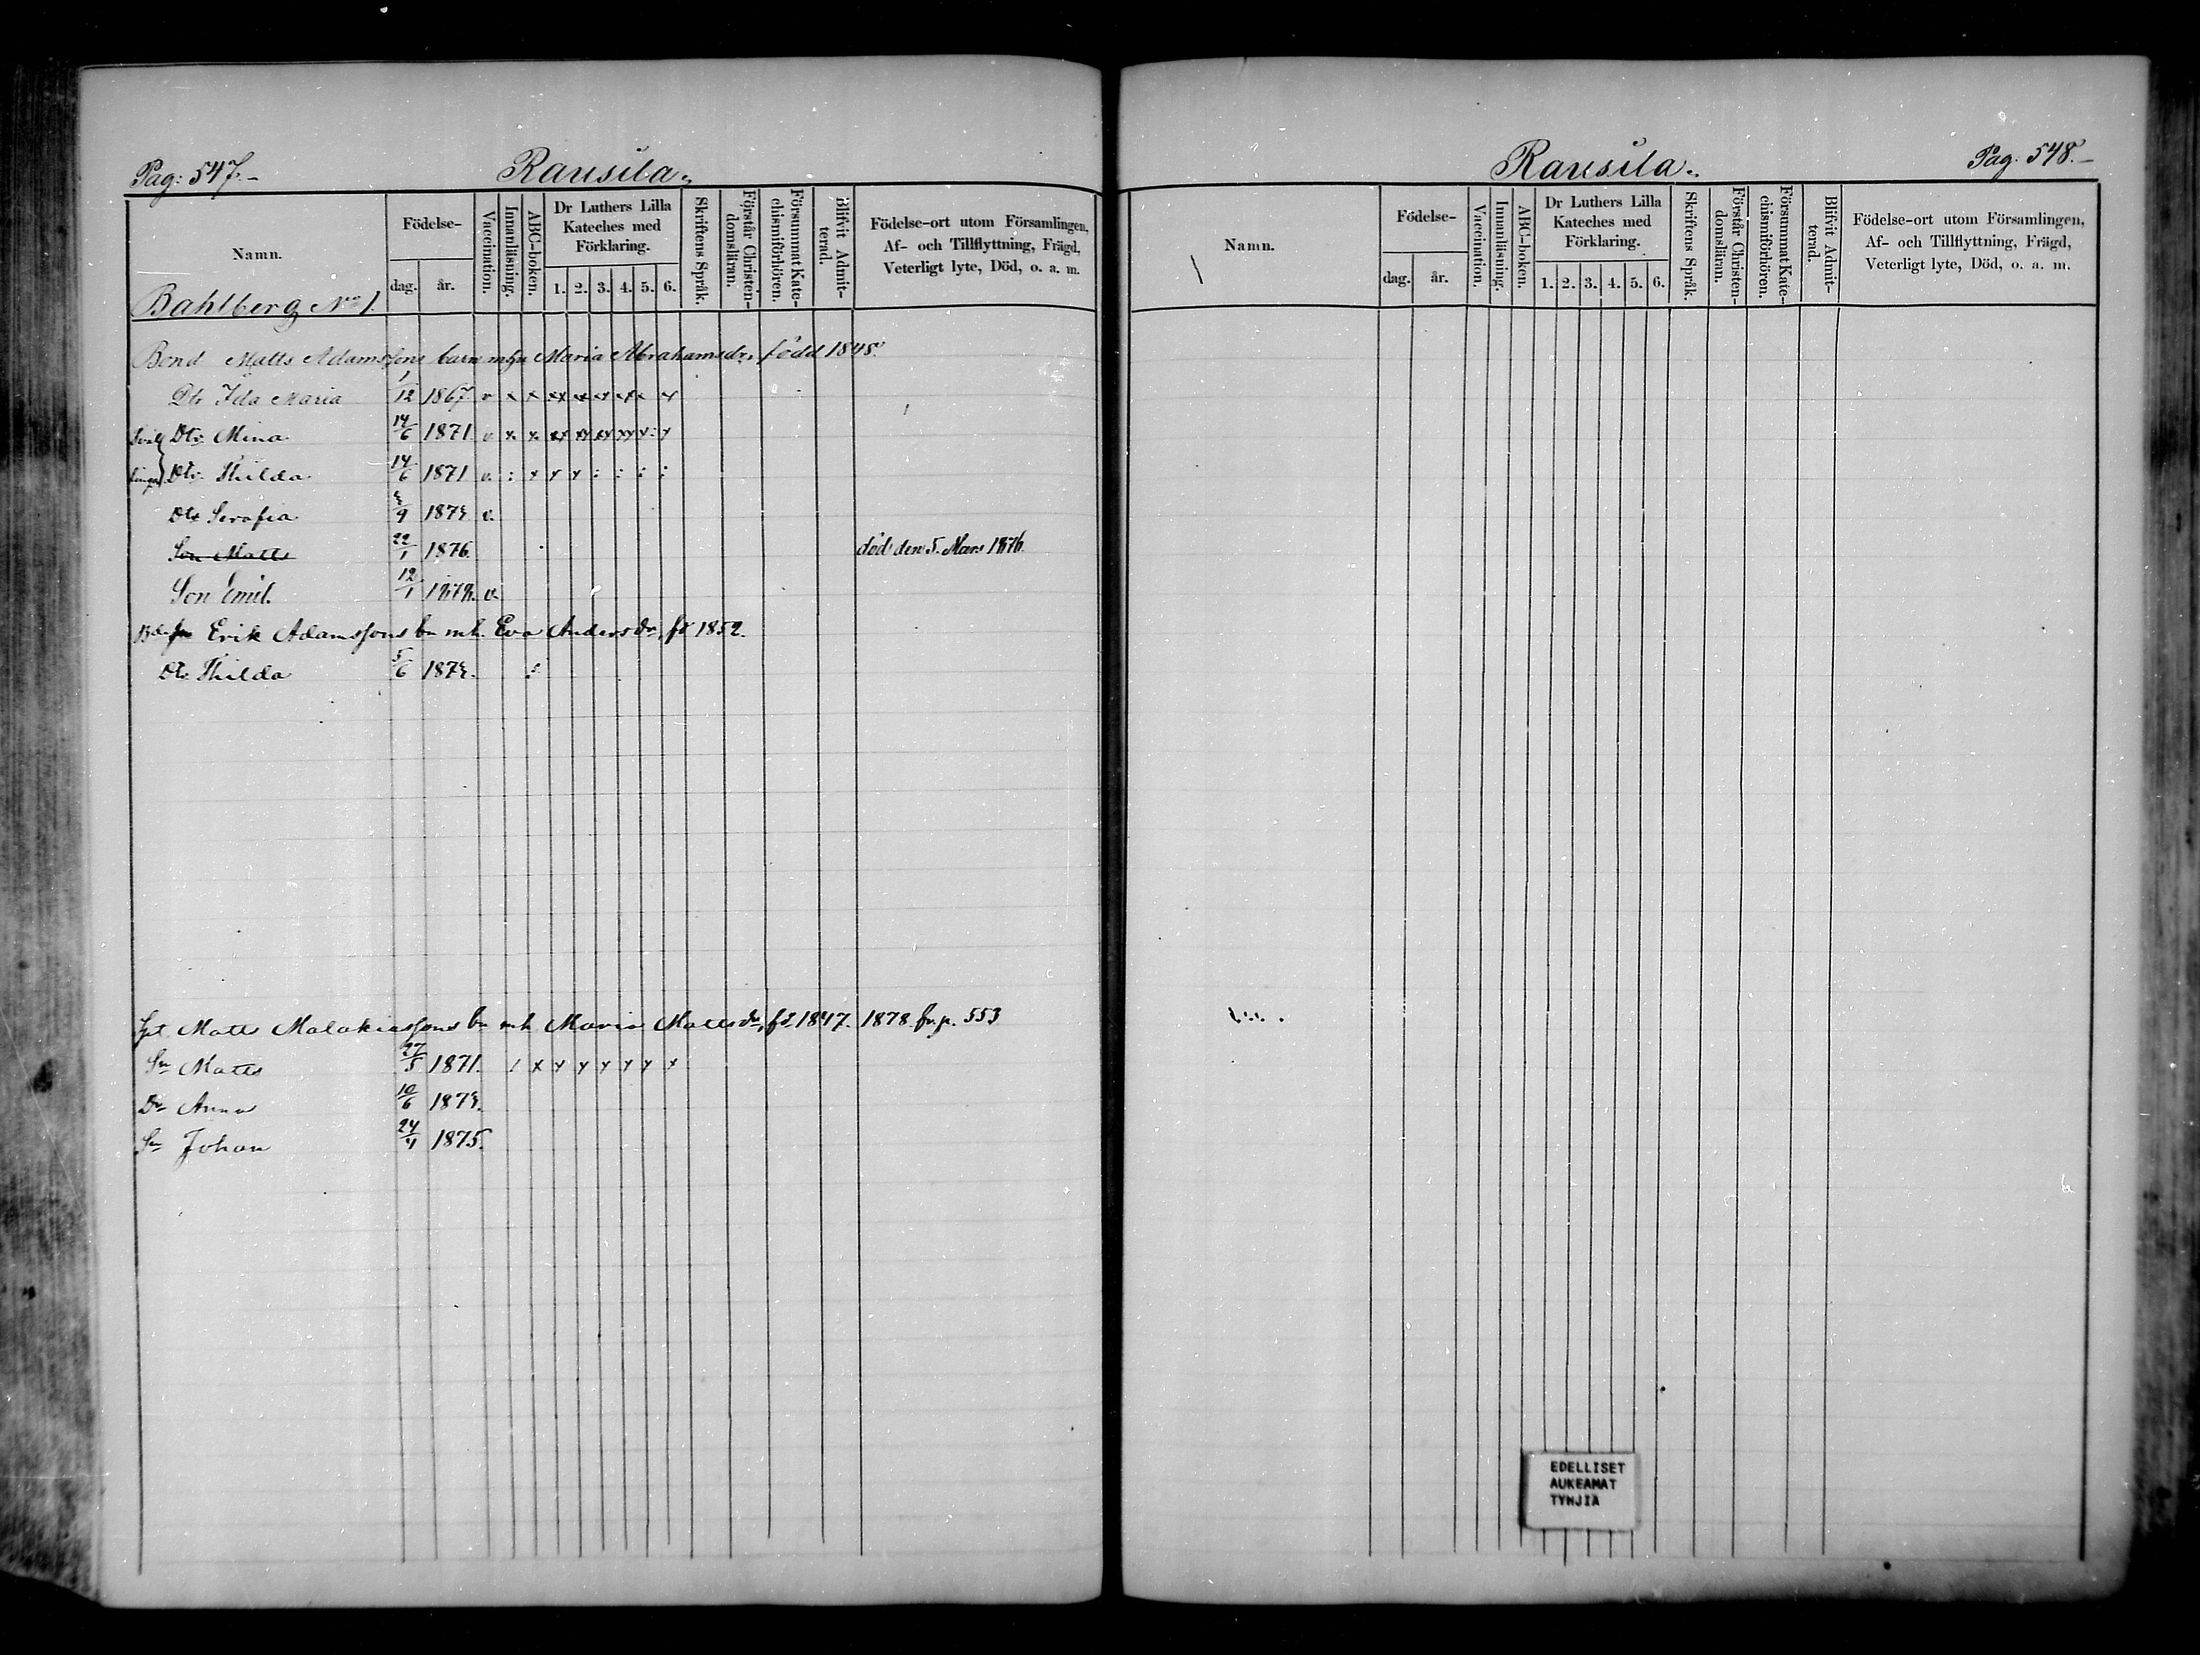 Pag: 547.-
Rausila.
Namn.
Födelse-
dag. år.
Vaccination.
Innanläsning.
ABC-boken.
Dr Luthers Lilla Kateches med Förklaring.
1. 2. 3. 4. 5. 6.
Skriftens Språk.
Förstår Christendomsläran.
Försummat Katechismiförhören.
Blifvit Admitterad.
Födelse-ort utom Församlingen,
Af- och Tillflyttning, Frägd,
Veterligt lyte, Död, o. a. m.
Bahlberg No 1.
Bond Matts Adamssons barn mhu Maria Abrahamsdr. född 1845.
Dtr Ida Maria 1/12 1867. v x x xx xx x x x x
Dtr. Mina 14/6 1871 v x. x. xx xx xx xx x: x
Dtr. Thilda 14/6 1871 v. : x x x : : : :
Dtr Serafia 9 1873 v.
Son Matts 22/1 1876. död den 5. Mars 1876.
Son Emil. 12/1 1878. v.
Erik Adamssons bn mh. Eva Andersdr, fö 1852.
Dtr Thilda 5/6 1873. :
Matts Malakiassons bn mh Maria Mattsdr, fö 1847. 1878 fr. p. 553
Sn Matts 27/5 1871. / x x x x x x x
Dr Anna 10/6 1873.
Sn Johan 24/4 1875.
Rausila.
Pag. 548.-
Namn.
Födelse-
dag. år.
Vaccination.
Innanläsning.
ABC-boken.
Dr Luthers Lilla Kateches med Förklaring.
1. 2. 3. 4. 5. 6.
Skriftens Språk.
Förstår Christendomsläran.
Försummat Katechismiförhören.
Blifvit Admitterad.
Födelse-ort utom Församlingen,
Af- och Tillflyttning, Frägd,
Veterligt lyte, Död, o. a. m.
EDELLISET
AUKEAMAT
TYHJIÄ